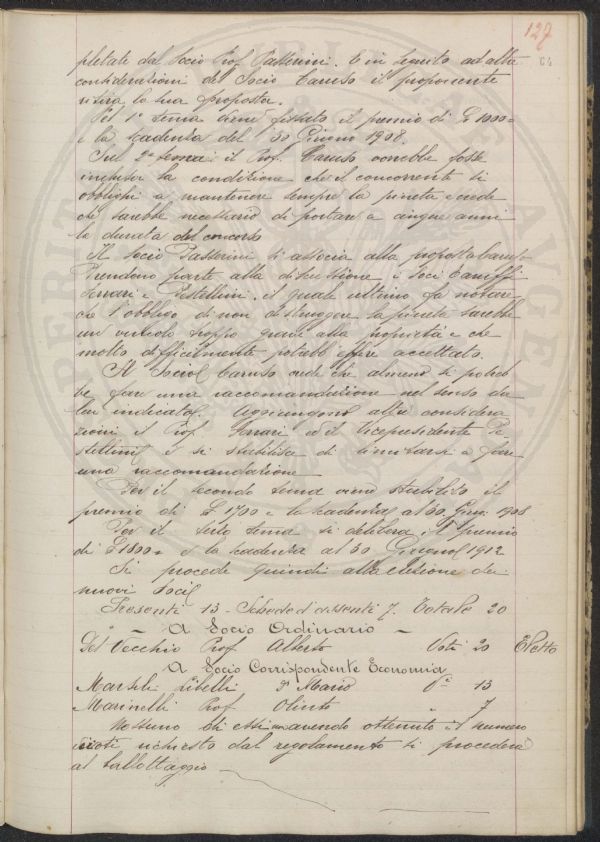 127
64
pletate dal Socio Prof. Passerini. E in seguito ad altre
considerazioni del Socio Caruso il proponente
ritira la sua proposta.
Pel 1° tema viene fissato il premio di £ 1000=
e la scadenza del 30 Giugno 1908.
Sul 2° tema il Prof. Caruso vorrebbe fosse
inclusa la condizione che il concorrente si
obblighi a mantenere sempre la pineta e crede
che sarebbe necessario di portare a cinque anni
la durata del concorso
Il Socio Passerini si associa alla proposta Caruso
Prendono parte alla discussione i Soci
Ferrari e Pestellini, il quale ultimo fa notare
che l'obbligo di non distruggere la pineta sarebbe
un vincolo troppo grave alla proprietà e che
molto difficilmente potrebbe essere accettato.
Il Socio Caruso crede che almeno si potreb
be fare una raccomandazione nel senso da
lui indicato. Aggiungono altre considera
zioni il Prof. Ferrari ed il Vicepresidente Pe
stellini e si stabilisce di limitarsi a fare
una raccomandazione
Per il secondo tema viene stabilito il
premio di £ 1700 e la scadenza al 30 Giug. 1908
Per il terzo tema si delibera il premio
di £ 1800= e la scadenza al 30 Giugno 1912
Si procede quindi alla elezione dei
nuovi Soci
Presenti 13 - Schede d'assenti 7. Totale 20
- A Socio Ordinario -
Del Vecchio Prof. Alberto Voti 20 Eletto
A Socio Corrispondente Economia
Marsili Libelli Mario 13
Marinelli Prof Olinto " 7
Nessuno di essi avendo ottenuto il numero
voti richiesto dal regolamento si procederà
al ballottaggio